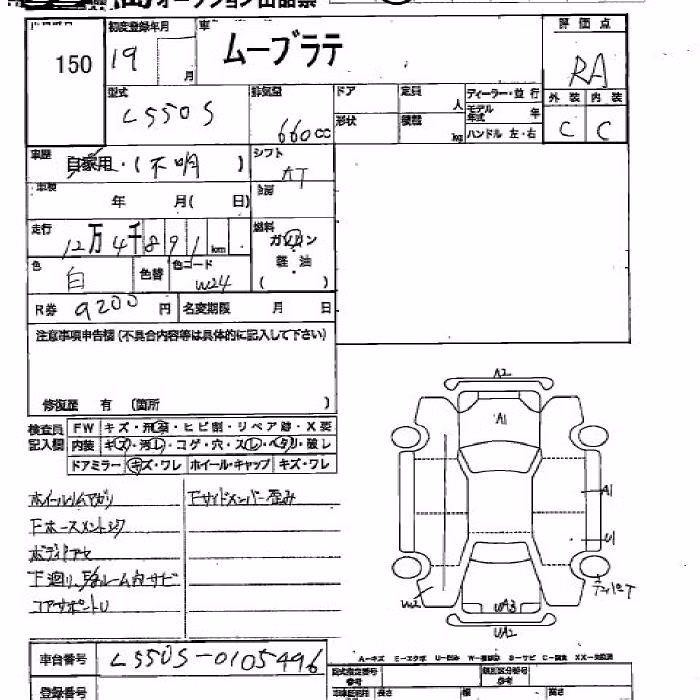 オークション出品票
150
初度登録年月
19
月
車
ムーブラテ
評価点
RA
型式
L550S
排気量
660cc
ドア
定員
人
ディーラー・並行
モデル年式
年
外装
内装
形状
積載
kg
ハンドル 左・右
C
C
車歴
自家用・(不明)
シフト
AT
車検
年 月( 日)
冷房
走行
12万4千891km
燃料
ガソリン
軽油
( )
色
白
色替
色コード
W24
R券 9200円
名変期限 月 日
注意事項申告欄(不具合内容等は具体的に記入して下さい)
修復歴 有 (箇所 )
検査員
記入欄
FW キズ・飛石・ヒビ割・リペア跡・X要
内装 キズ・汚レ・コゲ・穴・スレ・ヘタリ・破レ
ドアミラー キズ・ワレ ホイール・キャップ キズ・ワレ
ホイールリムサガリ
Fサイドメンバー歪み
Fホースメントシワ
下廻り、
コアサポートU
A2
A1
A1
U1
W2
UA3
UA2
車台番号
L550S-0105496
A-キズ E-エクボ U-凹み S-サビ C-腐食
登録番号
長さ
幅
高さ